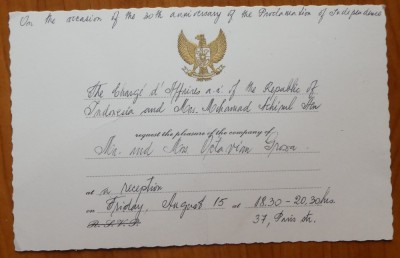 On the occasion of the 30th anniversary of the Proclamation of Independence
The Chargé d'Affaires a.i. of the Republic of
Indonesia and Mrs. Mohamad
request the pleasure of the company of
Mr. and Mrs Octavian Groza
at a reception
on Friday, August 15 at 18.30-20.30 hrs.
R.S.V.P. 37, Paris str.